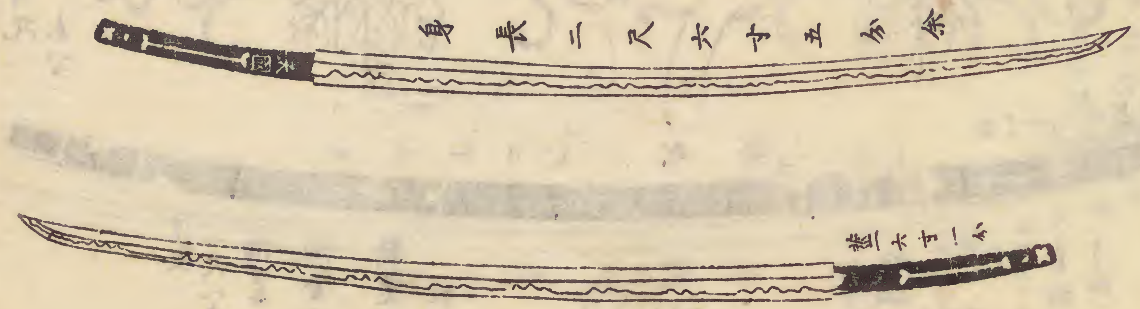 身長二尺六寸五分余
来國
莖六寸一分